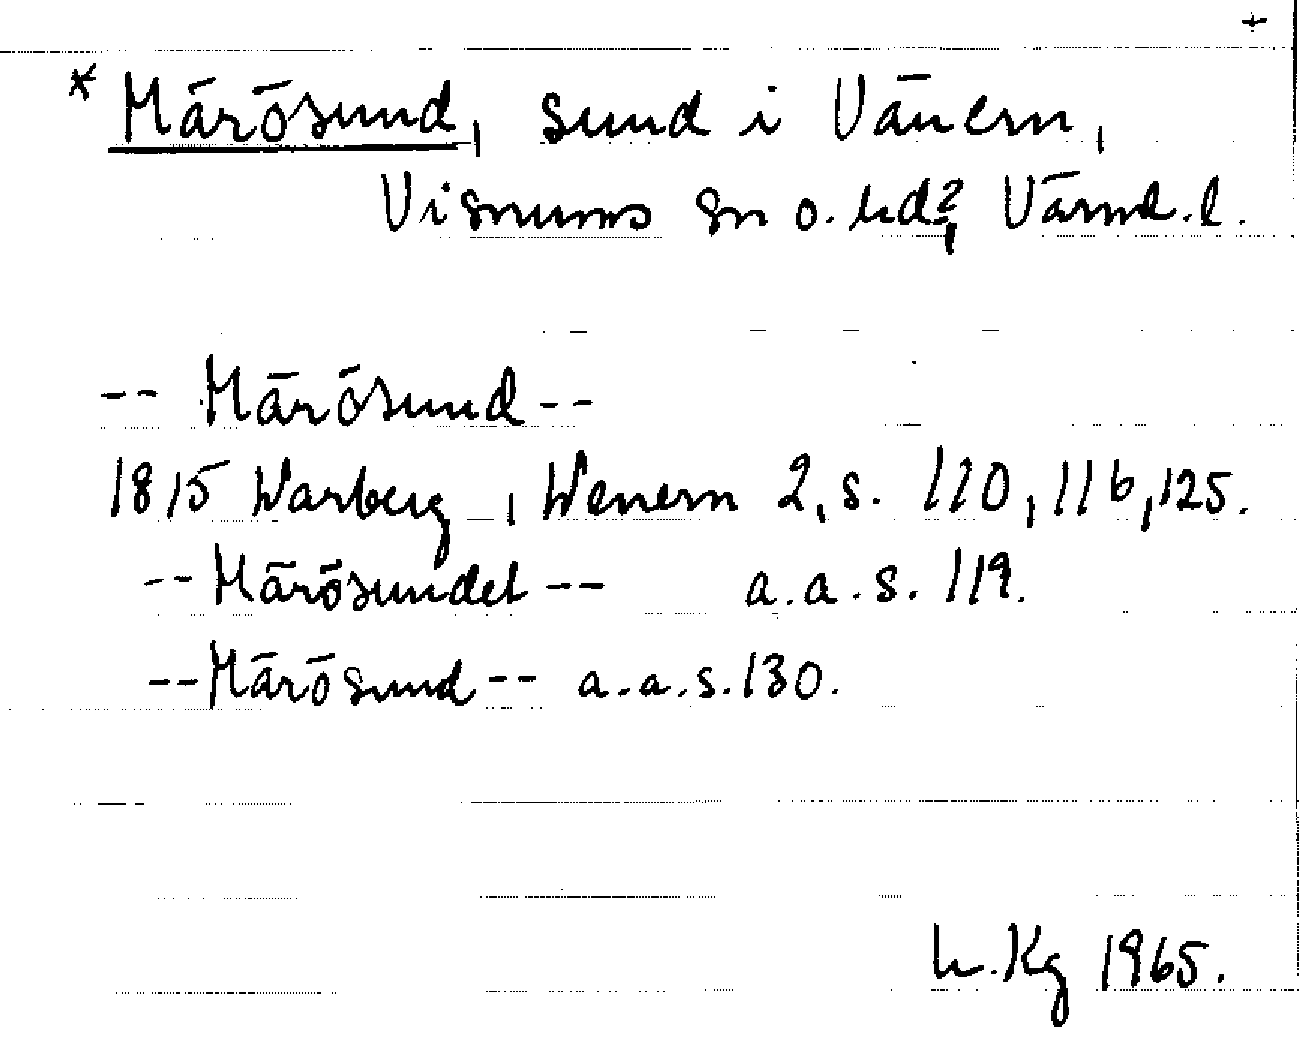 +
* Märösund, sund i Vänern,
Visnums sn o. hd?, Värml. l.
-- Märösund --
1815 Warberg, Wenern 2, s. 110, 116, 125.
-- Märösundet -- a.a. s. 119.
-- Märösund -- a.a. s. 130.
h. Kg 1965.